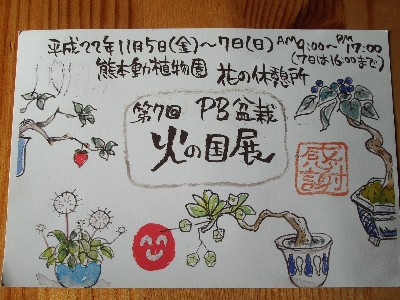 平成22年11月5日(金)～7日(日) AM9:00～PM17:00
(7日は16:00まで)
熊本動植物園 花の休憩所
第7回 PB盆栽
火の国展
感謝